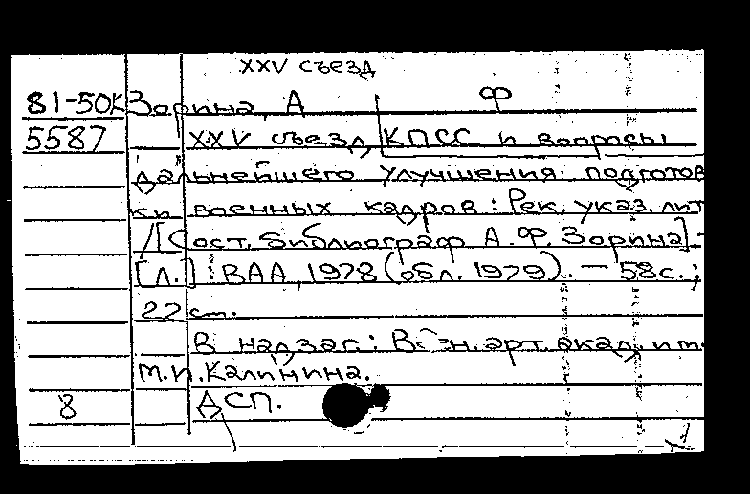 XXV съезд
81-50К Зорина, А Ф
5587 XXV съезд КПСС и вопросы
дальнейшего улучшения подготов
ки военных кадров: Рек. указ. лит
/[Сост. библиограф А. Ф. Зорина] -
[Л.]: ВАА, 1978 (обл. 1979). — 58с.;
22 см.
В надзаг.: Воен. арт. акад. им.
М.И. Калинина.
8 ДСП.